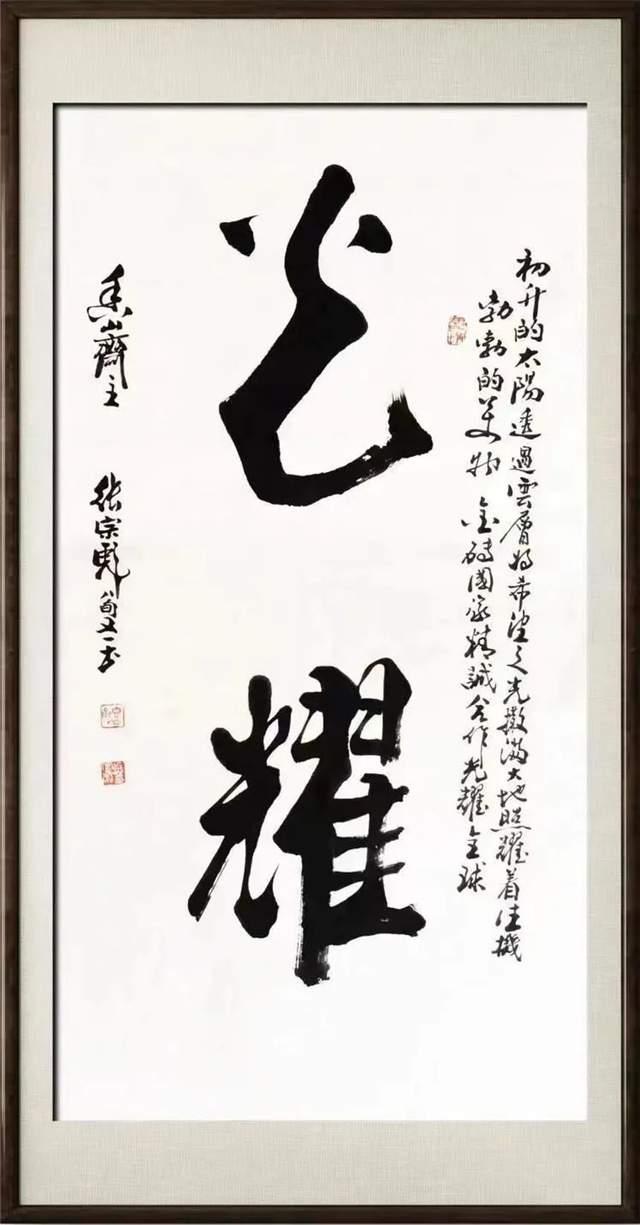 初升的太陽透過雲層将希望之光撒滿大地照耀着生機
勃勃的萬物 金磚國家精誠合作光耀全球
光耀
山齋主 張宗彪 八旬又一书